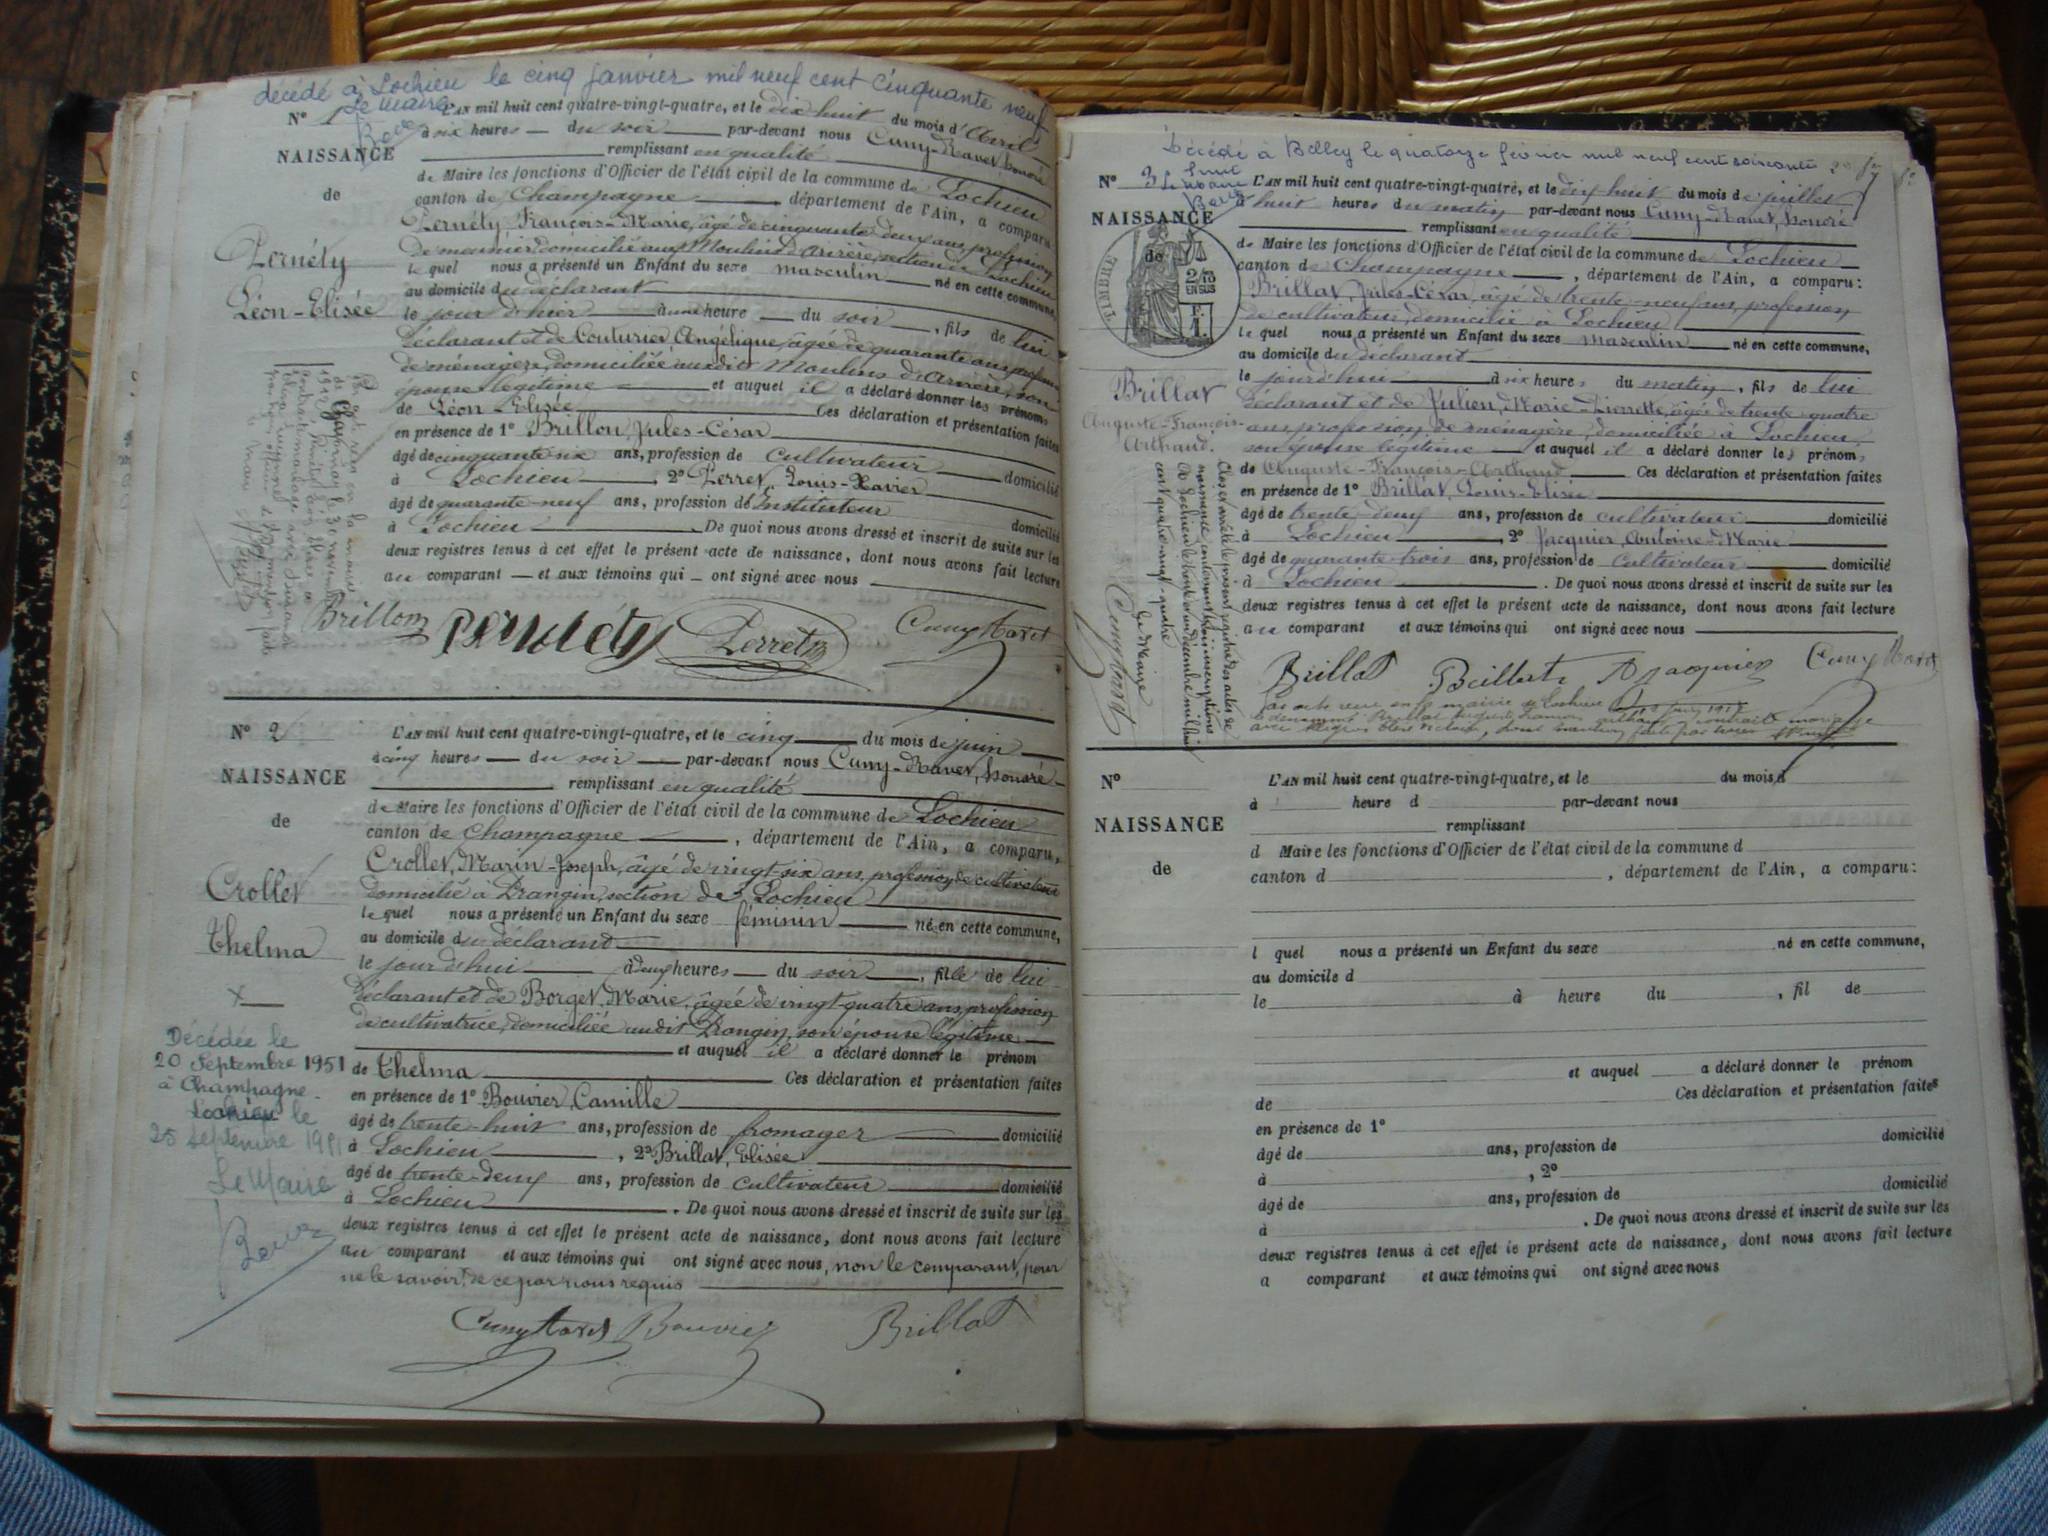 décédé à Lochieu le cinq janvier mil neuf cent cinquante neuf
Le Maire
N° 1 L'AN mil huit cent quatre-vingt-quatre, et le dix huit du mois d'Avril
à six heures du soir par-devant nous Cuny-Ravet, honoré
NAISSANCE remplissant en qualité
de Maire les fonctions d'Officier de l'état civil de la commune de Lochieu
de canton de Champagne département de l'Ain, a comparu
Pernéty François-Marie, âgé de cinquante deux ans, profession
de meunier domicilié aux Moulins d'Arvière, section de Lochieu
Pernéty le quel nous a présenté un Enfant du sexe masculin né en cette commune,
au domicile du déclarant
Léon-Elisée le jour d'hier à une heure du soir, fils de lui
déclarant et de Couturier Angélique, âgée de quarante ans, profession
de ménagère, domiciliée audit Moulins d'Arvière, son
épouse légitime et auquel il a déclaré donner les prénoms
de Léon Elisée Ces déclaration et présentation faites
en présence de 1° Brillon, Jules-César
âgé de cinquante six ans, profession de cultivateur domicilié
à Lochieu, 2° Perret, Louis-Xavier
âgé de quarante-neuf ans, profession d'Instituteur domicilié
à Lochieu. De quoi nous avons dressé et inscrit de suite sur les
deux registres tenus à cet effet le présent acte de naissance, dont nous avons fait lecture
au comparant et aux témoins qui ont signé avec nous
Brillon Pernéty Perret Cuny Ravet
N° 2 L'AN mil huit cent quatre-vingt-quatre, et le cinq du mois de juin
à cinq heures du soir par-devant nous Cuny-Ravet, honoré
NAISSANCE remplissant en qualité
de Maire les fonctions d'Officier de l'état civil de la commune de Lochieu
de canton de Champagne, département de l'Ain, a comparu,
Crollet, Marin-Joseph, âgé de vingt-six ans, profession de cultivateur
domicilié à Drangin, section de Lochieu
Crollet le quel nous a présenté un Enfant du sexe féminin né en cette commune,
au domicile du déclarant
Thelma le jour d'hui à deux heures du soir, fille de lui
déclarant et de Borget, Marie, âgée de vingt-quatre ans, profession
de cultivatrice, domiciliée audit Drangin, son épouse légitime
et auquel il a déclaré donner le prénom
de Thelma Ces déclaration et présentation faites
en présence de 1° Bouvier, Camille
âgé de trente-huit ans, profession de fromager domicilié
à Lochieu, 2° Brillat, Elisée
âgé de trente-deux ans, profession de cultivateur domicilié
à Lochieu. De quoi nous avons dressé et inscrit de suite sur les
deux registres tenus à cet effet le présent acte de naissance, dont nous avons fait lecture
au comparant et aux témoins qui ont signé avec nous, non le comparant, pour
ne le savoir, de ce par nous requis
Décédée le
20 Septembre 1951
à Champagne
Lochieu le
25 septembre 1951
Le Maire
Cuny Ravet Bouvier Brillat
Décédé à Belley le quatorze février mil neuf cent soixante
huit
Le Maire
N° 3 L'AN mil huit cent quatre-vingt-quatre, et le dix-huit du mois de juillet
à huit heures du matin par-devant nous Cuny-Ravet, honoré
NAISSANCE remplissant en qualité
de Maire les fonctions d'Officier de l'état civil de la commune de Lochieu
de canton de Champagne, département de l'Ain, a comparu:
TIMBRE
2/10
EN SUS
Brillat, Jules-César, âgé de trente-neuf ans, profession
de cultivateur, domicilié à Lochieu
le quel nous a présenté un Enfant du sexe masculin né en cette commune,
au domicile du déclarant
Brillat le jour d'hui à six heures du matin, fils de lui
Auguste-François- déclarant et de Julien, Marie-Pierrette, âgée de trente-quatre
Arthaud. ans, profession de ménagère, domiciliée à Lochieu,
son épouse légitime et auquel il a déclaré donner les prénoms
de Auguste-François-Arthaud Ces déclaration et présentation faites
en présence de 1° Brillat, Louis-Elisée
âgé de trente-deux ans, profession de cultivateur domicilié
à Lochieu, 2° Jacquier, Antoine-Marie
âgé de quarante-trois ans, profession de cultivateur domicilié
à Lochieu. De quoi nous avons dressé et inscrit de suite sur les
deux registres tenus à cet effet le présent acte de naissance, dont nous avons fait lecture
au comparant et aux témoins qui ont signé avec nous
Clos et arrêté le présent registre des actes de
naissance contenant trois inscriptions
à Lochieu le trente un décembre mil huit
cent quatre-vingt-quatre
Le Maire
Cuny Ravet
Brillat Brillat Jacquier Cuny Ravet
N° L'AN mil huit cent quatre-vingt-quatre, et le du mois d
à heure d par-devant nous
NAISSANCE remplissant
d Maire les fonctions d'Officier de l'état civil de la commune d
de canton d , département de l'Ain, a comparu:
l quel nous a présenté un Enfant du sexe né en cette commune,
au domicile d
le à heure du , fil de
et auquel a déclaré donner le prénom
de Ces déclaration et présentation faites
en présence de 1°
âgé de ans, profession de domicilié
à , 2°
âgé de ans, profession de domicilié
à . De quoi nous avons dressé et inscrit de suite sur les
deux registres tenus à cet effet le présent acte de naissance, dont nous avons fait lecture
a comparant et aux témoins qui ont signé avec nous